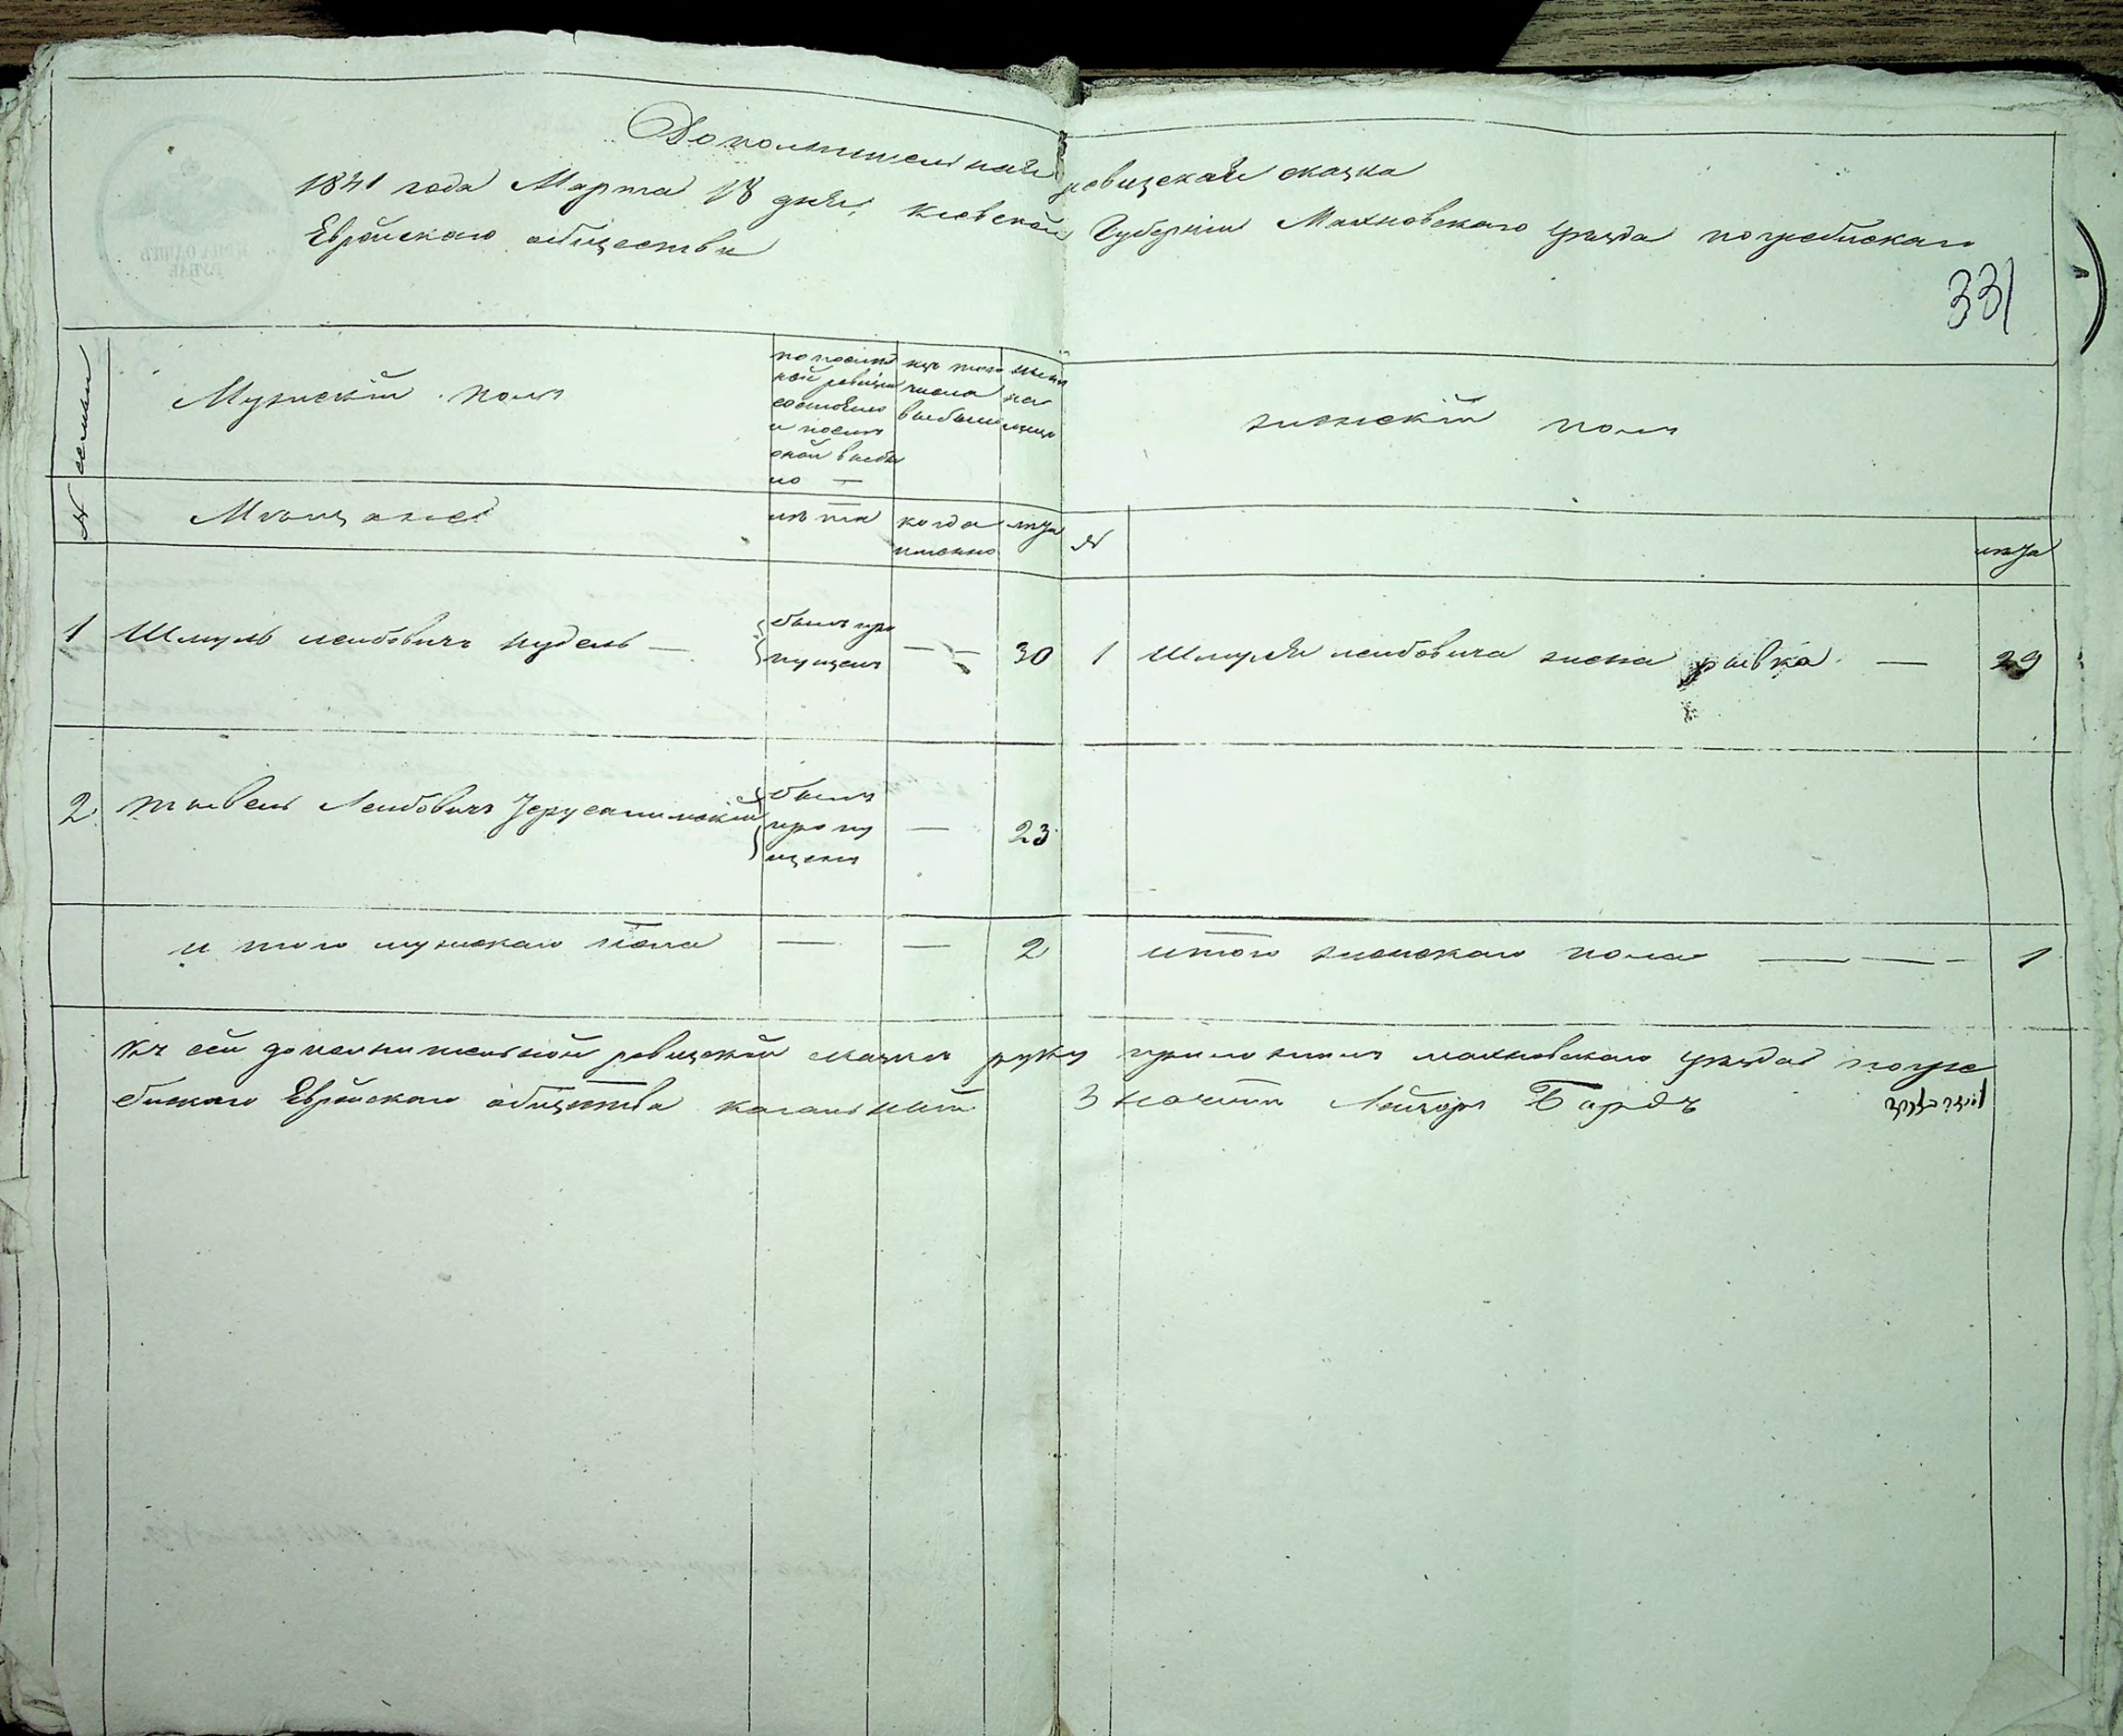 Дополнительная ревизская сказка
1841 года Марта 18 дня, Киевской Губернии Махновского уезда погребиского
Еврейского общества
331
№ семьи
Мужский пол
по послед
ней ревизии
состояло
и после
оной выбы
ло —
из того
числа
выбыло
ныне
на
лицо
женский пол
№
Мещане
лета
когда
именно
лета
№
лета
1 Шмуль лейбовичъ нудель — былъ про
пущенъ — — 30 1 Шмуля лейбовича жена ривка — 29
2 Лейбовичъ Іерусалимский былъ
пропу
щенъ — 23
и того мужскаго пола — — 2 итого женскаго пола — — - 1
Къ сей дополнительной ревизской сказки руку приложилъ махновскаго уезда погре
бискаго Еврейскаго общества кагальный